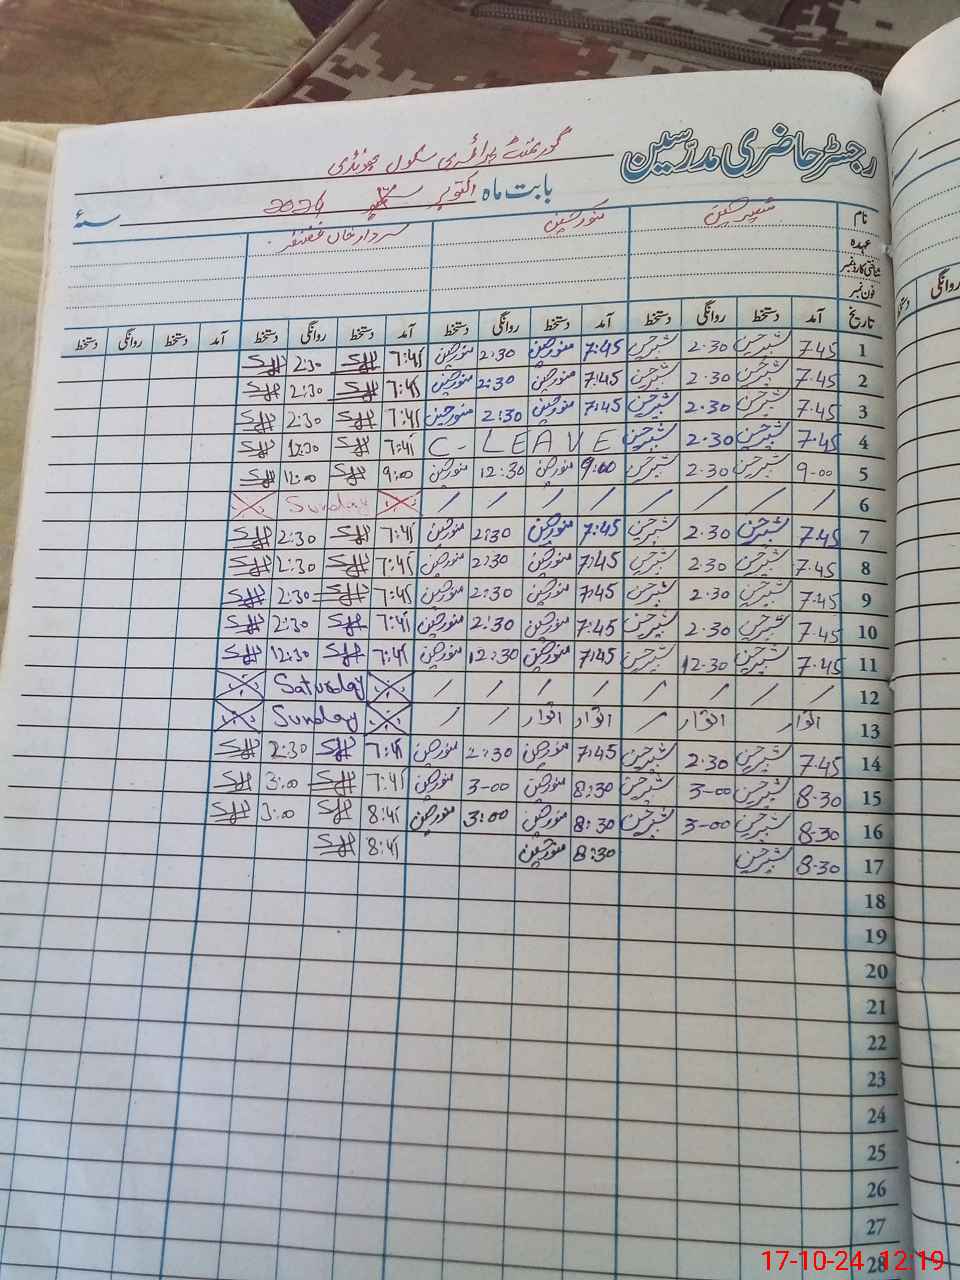 رجسٹر حاضری مدرسین
گورنمنٹ پرائمری سکول
بابت ماہ اکتوبر 2024 سنۂ
نام شبیر حسین منور حسین سردار خان غضنفر
عہدہ
شناختی کارڈ نمبر
فون نمبر
تاریخ آمد دستخط روانگی دستخط آمد دستخط روانگی دستخط آمد دستخط روانگی دستخط آمد دستخط روانگی دستخط
1 7.45 شبیر حسین 2.30 شبیر حسین 7:45 منور حسین 2:30 منور حسین 7:45 2:30
2 7.45 شبیر حسین 2.30 شبیر حسین 7:45 منور حسین 2:30 منور حسین 7:45 2:30
3 7.45 شبیر حسین 2.30 شبیر حسین 7:45 منور حسین 2:30 منور حسین 7:45 2:30
4 7.45 شبیر حسین 2.30 شبیر حسین C-LEAVE 7:45 12:30
5 9-00 شبیر حسین 2.30 شبیر حسین 9:00 منور حسین 12:30 منور حسین 9:00
6 / / / / / / / / Sunday
7 7.45 شبیر حسین 2.30 شبیر حسین 7:45 منور حسین 2:30 منور حسین 7:45 2:30
8 7.45 شبیر حسین 2.30 شبیر حسین 7:45 منور حسین 2:30 منور حسین 7:45 2:30
9 7.45 شبیر حسین 2.30 شبیر حسین 7:45 منور حسین 2:30 منور حسین 7:45 2:30
10 7.45 شبیر حسین 2.30 شبیر حسین 7:45 منور حسین 2:30 منور حسین 7:45 2:30
11 7.45 شبیر حسین 12.30 شبیر حسین 7:45 منور حسین 12:30 منور حسین 7:45 12:30
12 / / / / / / / / Saturday
13 اتوار اتوار / اتوار اتوار / / Sunday
14 7.45 شبیر حسین 2.30 شبیر حسین 7:45 منور حسین 2:30 منور حسین 7:45 2:30
15 8.30 شبیر حسین 3-00 شبیر حسین 8:30 منور حسین 3-00 منور حسین 7:45 3:00
16 8.30 شبیر حسین 3-00 شبیر حسین 8:30 منور حسین 3:00 منور حسین 8:45 3:00
17 8.30 شبیر حسین 8:30 منور حسین 8:45
18
19
20
21
22
23
24
25
26
27
28
17-10-24 12:19